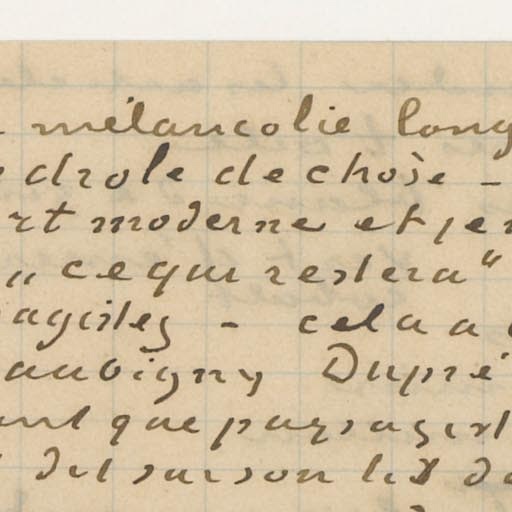 mélancolie long
drole de chose –
rt moderne et je
„ce qui restera“
agistes – cela a
aubigny Dupré
ant que paysagist